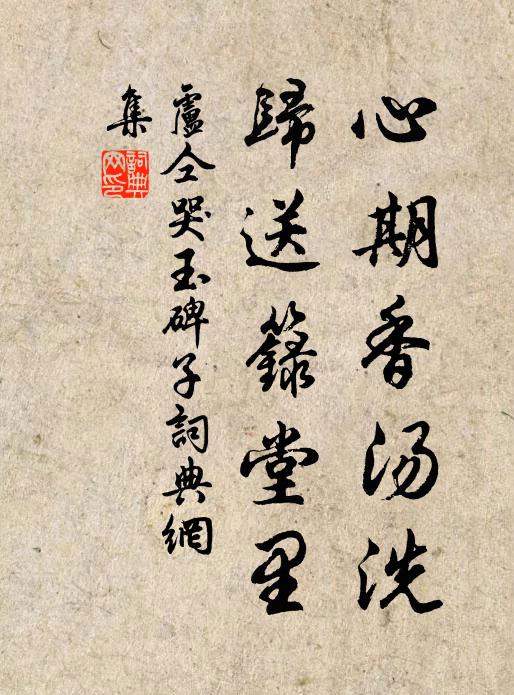 心期香湯洗
歸送籙堂里
盧仝哭玉碑子詞典網
集
詞典网印